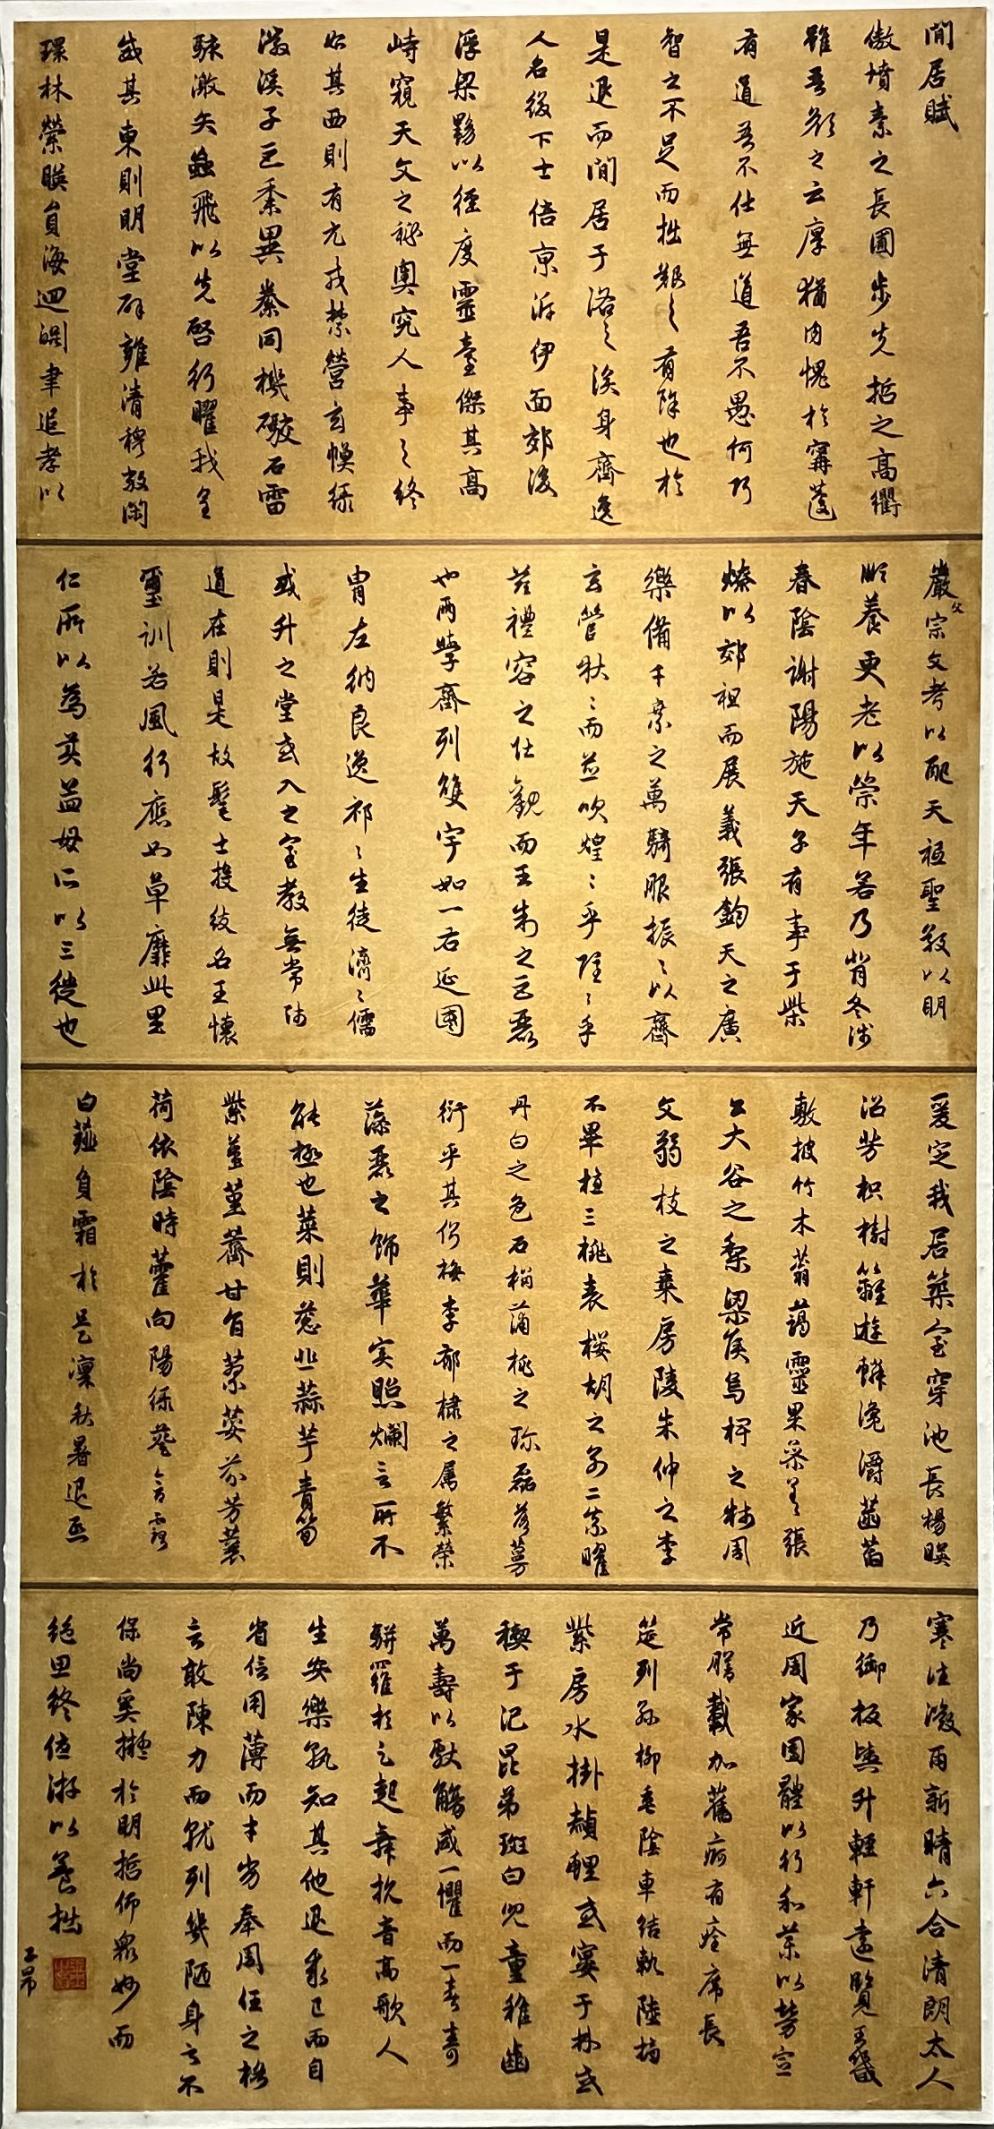 閒居賦
傲墳素之長圃步先哲之高衢
雖吾顏之云厚猶內愧於甯蘧
有道吾不仕無道吾不愚何巧
智之不足而拙艱之有餘也於
是退而閒居于洛之涘身齊逸
人名綴下士倍京泝伊面郊後
浮梁黝以徑度靈臺傑其高
峙窺天文之祕奧究人事之終
始其西則有元戎禁營玄幙綠
徽溪子巨黍異絭同機礮石雷
駭激矢蝱飛以先啓行曜我皇
威其東則明堂辟雍清穆敞閑
環林縈暎員海迴淵聿追孝以
嚴父宗文考以配天祗聖敬以明
順養更老以崇年若乃背冬涉
春陰謝陽施天子有事于柴
燎以郊祖而展義張鈞天之廣
樂備千乘之萬騎服振振以齊
玄管啾啾而並吹煌煌乎隱隱乎
茲禮容之壯觀而王制之巨麗
也兩學齊列雙宇如一右延國
胄左納良逸祁祁生徒濟濟儒
或升之堂或入之室教無常師
道在則是故髦士投紱名王懷
璽訓若風行應如草靡此里
仁所以為美孟母所以三徙也
爰定我居築室穿池長楊暎
沼芳枳樹籬遊鱗瀺灂菡萏
敷披竹木蓊藹靈果參差張
公大谷之梨梁侯烏椑之柿周
文弱枝之棗房陵朱仲之李
不畢植三桃表櫻胡之別二柰曜
丹白之色石榴蒲桃之珍磊落蔓
衍乎其側梅李郁棣之屬繁榮
藻麗之飾華實照爛言所不
能極也菜則葱韭蒜芋青筍
紫薑堇薺甘旨蓼荾芬芳蘘
荷依陰時藿向陽綠葵含露
白薤負霜於是凜秋暑退熙
寒往微雨新晴六合清朗太人
乃御板輿升輕軒遠覽王畿
近周家園體以行和藥以勞宣
常膳載加舊痾有痊席長
筵列孫柳垂陰車結軌陸摘
紫房水掛赬鯉或宴于林或
禊于汜昆弟斑白兒童稚齒
萬壽以獻觴咸一懼而一喜壽
駢羅於之起舞抗音高歌人
生安樂孰知其他退求己而自
省信用薄而才劣奉周任之格
言敢陳力而就列幾陋身之不
保尚奚擬於明哲仰衆妙而
絕思終優游以養拙
子昂